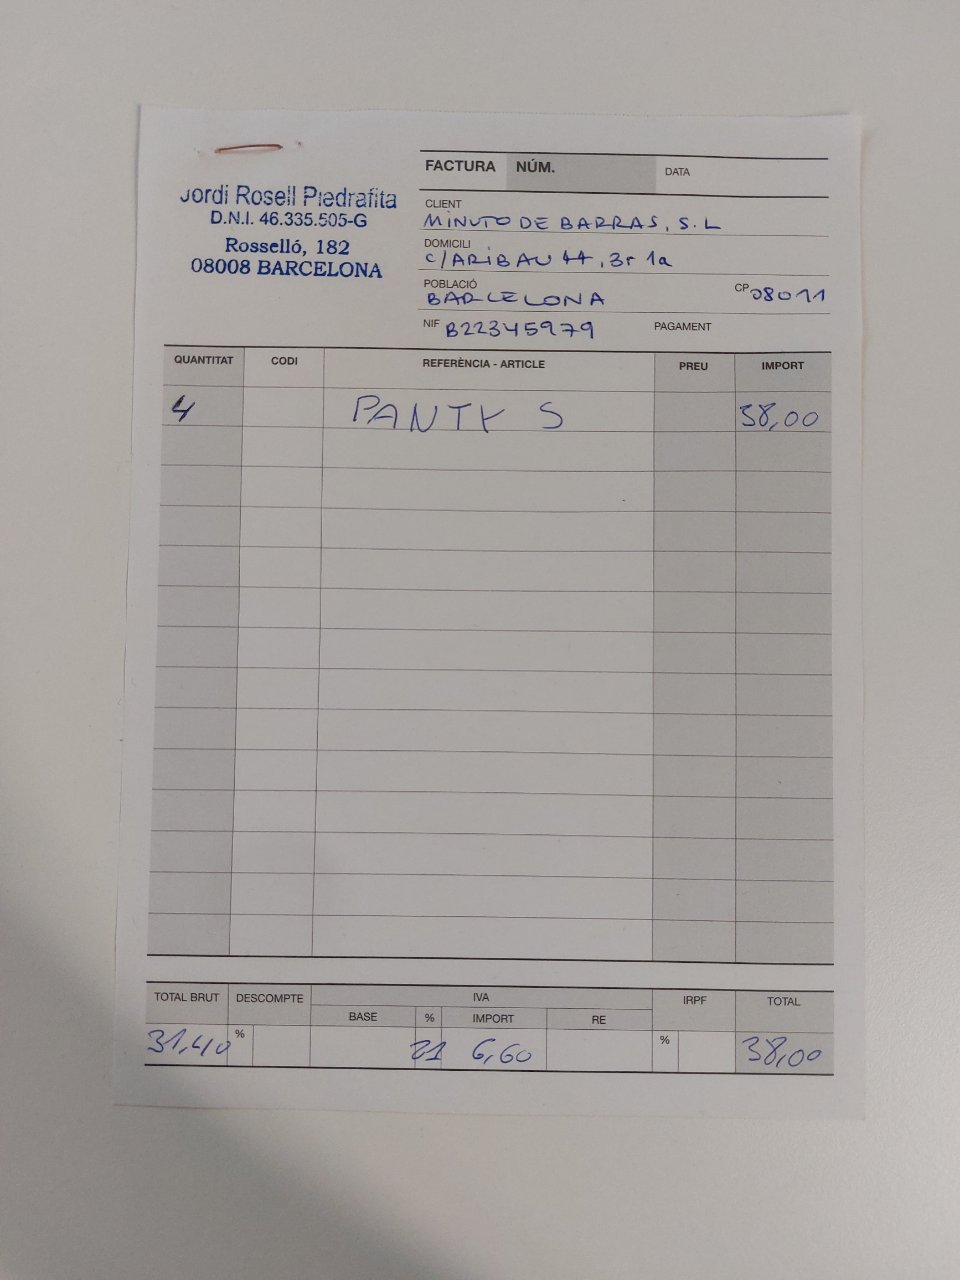 Jordi Rosell Piedrafita
D.N.I. 46.335.505-G
Rosselló, 182
08008 BARCELONA
FACTURA NÚM. DATA
CLIENT
MINUTO DE BARRAS, S.L
DOMICILI
C/ARIBAU 44, 3r 1a
POBLACIÓ
BARCELONA CP 08011
NIF B22345979 PAGAMENT
QUANTITAT CODI REFERÈNCIA - ARTICLE PREU IMPORT
4 PANTY S 38,00
TOTAL BRUT DESCOMPTE IVA IRPF TOTAL
BASE % IMPORT RE
31,40 % 21 6,60 % 38,00